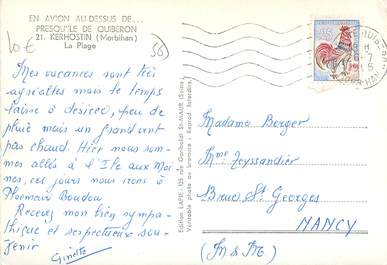 EN AVION AU-DESSUS DE...
PRESQU'ILE DE QUIBERON
21. KERHOSTIN (Morbihan)
La Plage
10 €
56
Mes vacances sont très
agréables mais le temps
laisse à désirer, peu de
pluie mais un grand vent
pas chaud. Hier nous som-
mes allés à l'Ile aux Moi-
nes, ces jours nous irons à
Ploemeur Boudou
Recevez mon bien sympa-
thique et respectueux sou-
venir
Ginette
Edition LAPIE, 125 av. Garibaldi St-MAUR (Seine)
Véritable photo au bromure : Reprod. Interdite
Madame Berger
Mme Teyssandier
5 Rue St Georges
NANCY
(M & Me)